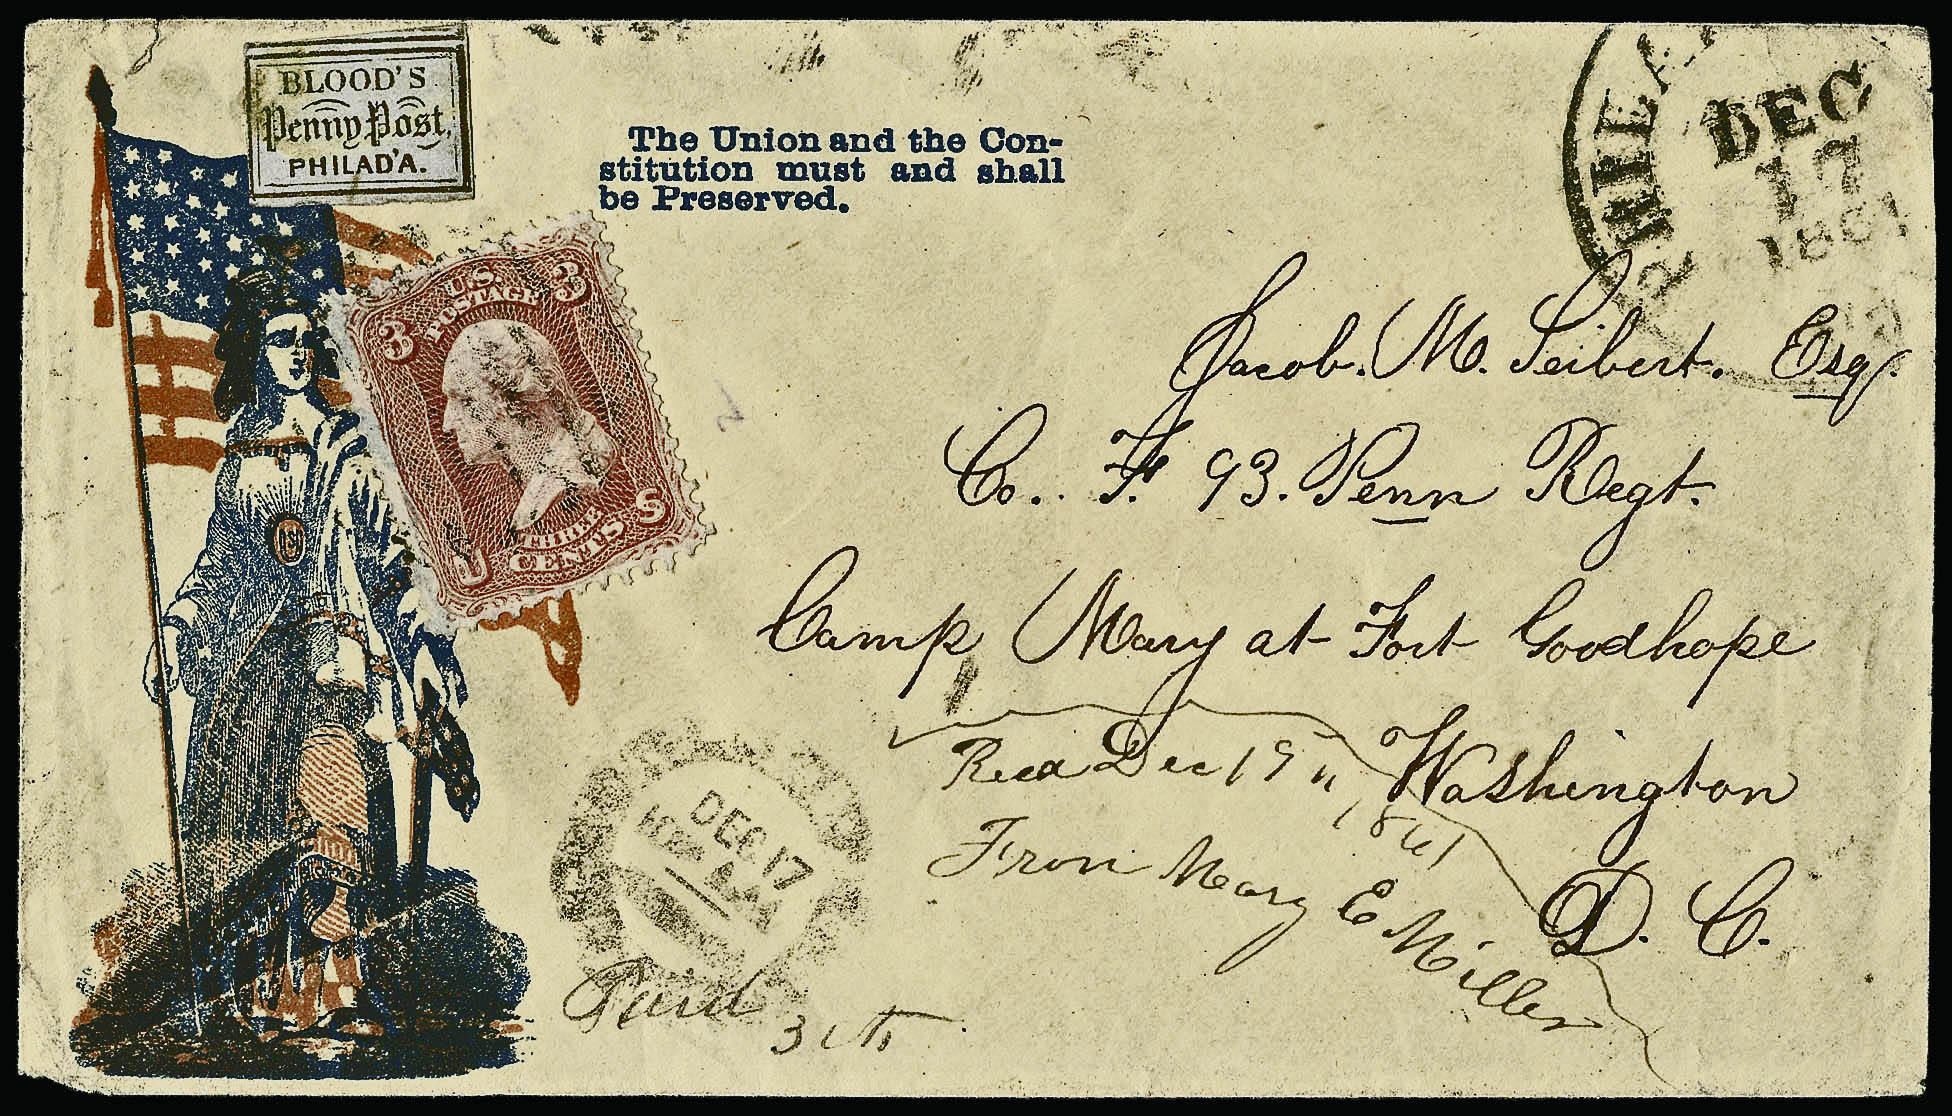 BLOOD'S
Penny Post,
PHILAD'A.
The Union and the Con-
stitution must and shall
be Preserved.
DEC
17
1861
U.S.
POSTAGE
3
3
THREE
CENTS
U
S
Jacob. M. Seibert. Esq.
Co. F. 93. Penn Regt.
Camp Mary at Fort Goodhope
Washington
D. C.
Recd Dec 19th 1861
From Mary E Miller
DEC 17
Paid
3 cts